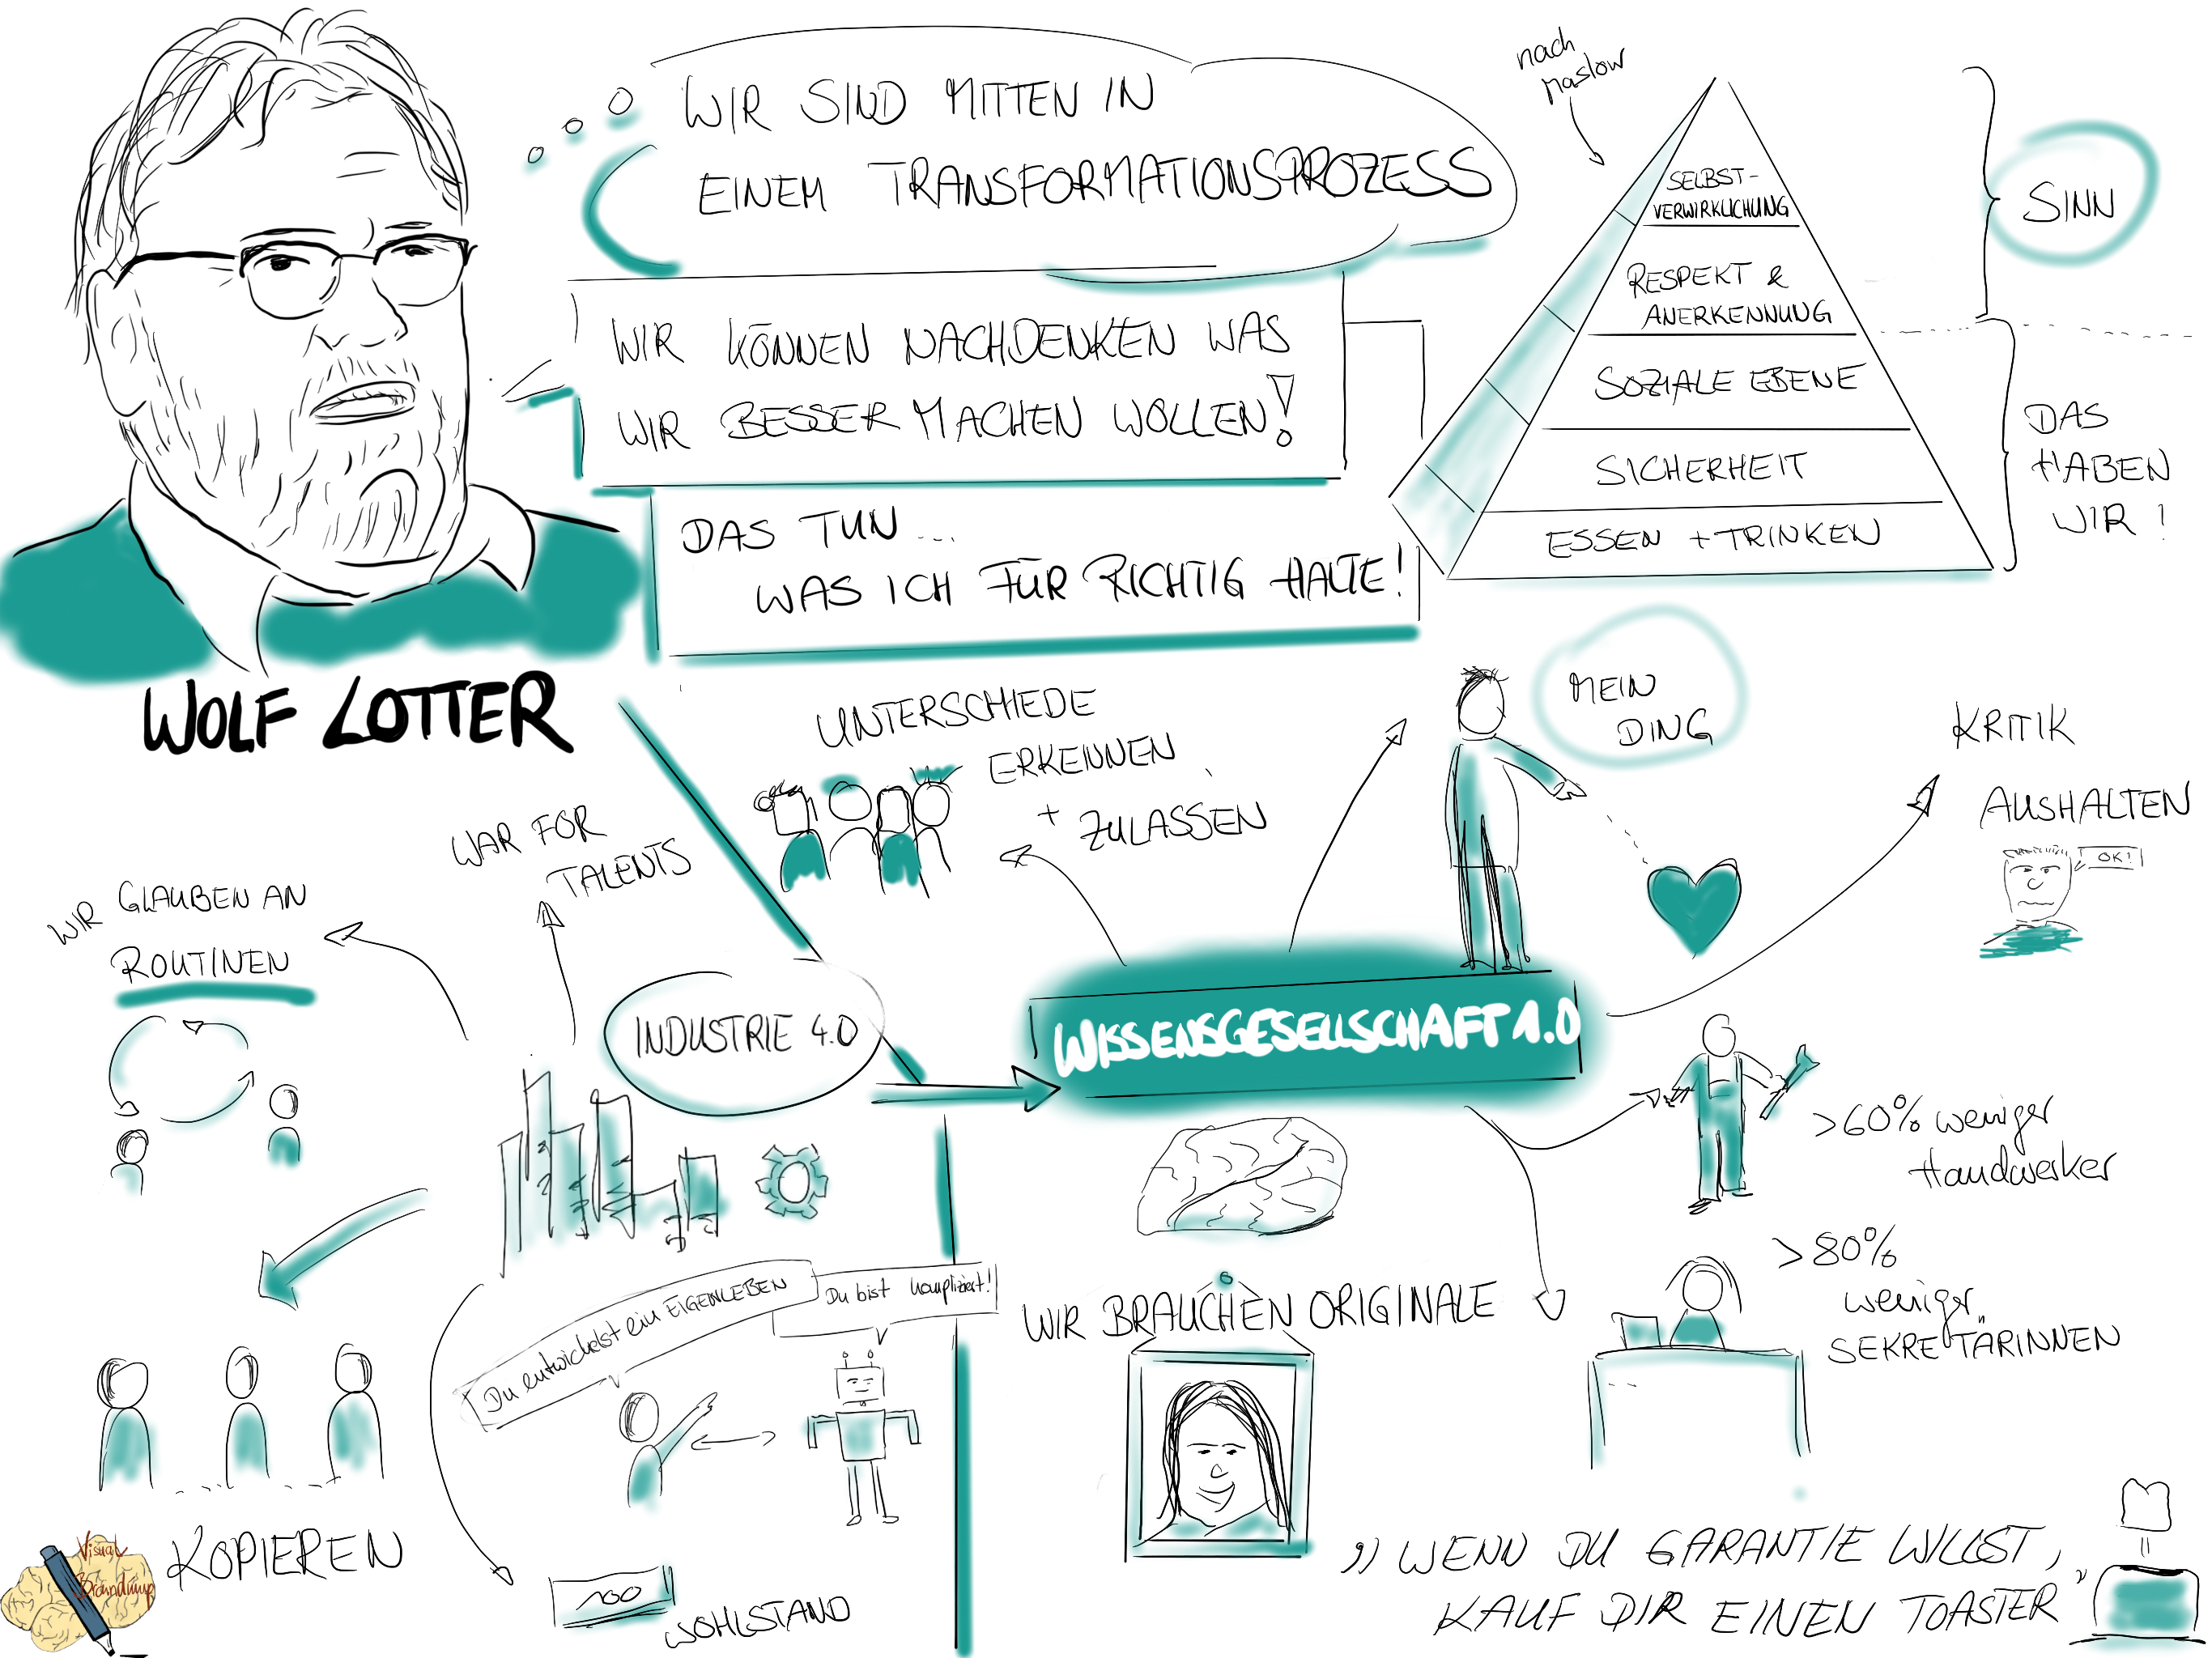 WIR SIND MITTEN IN
EINEM TRANSFORMATIONSPROZESS
WIR KÖNNEN NACHDENKEN WAS
WIR BESSER MACHEN WOLLEN!
DAS TUN...
WAS ICH FÜR RICHTIG HALTE!
WOLF LOTTER
nach
Maslow
SELBST-
VERWIRKLICHUNG
RESPEKT &
ANERKENNUNG
SOZIALE EBENE
SICHERHEIT
ESSEN + TRINKEN
SINN
DAS
HABEN
WIR!
UNTERSCHIEDE
ERKENNEN
+ ZULASSEN
MEIN
DING
KRITIK
AUSHALTEN
OK!
WAR FOR
TALENTS
WIR GLAUBEN AN
ROUTINEN
INDUSTRIE 4.0
WISSENSGESELLSCHAFT 1.0
>60% weniger
Handwerker
>80%
weniger
SEKRETÄRINNEN
Du entwickelst ein EIGENLEBEN
Du bist kompliziert!
WIR BRAUCHEN ORIGINALE
KOPIEREN
100
WOHLSTAND
„WENN DU GARANTIE WILLST,
KAUF DIR EINEN TOASTER"
Visual
Braindump